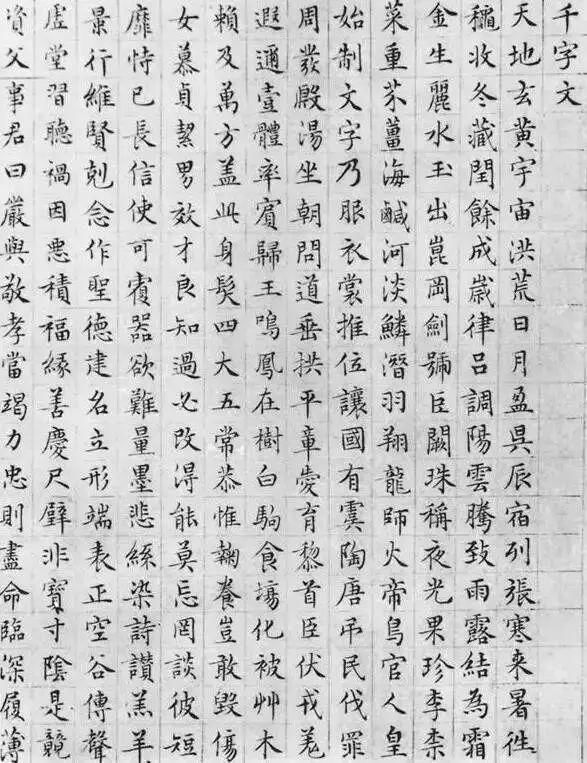 千字文
天地玄黃宇宙洪荒日月盈昃辰宿列張寒来暑徃
穐收冬藏閏餘成歲律吕調陽雲騰致雨露結為霜
金生麗水玉出崑岡劍號巨闕珠稱夜光果珍李柰
菜重芥薑海鹹河淡鱗潛羽翔龍師火帝鳥官人皇
始制文字乃服衣裳推位讓國有虞陶唐弔民伐罪
周發殷湯坐朝問道垂拱平章愛育黎首臣伏戎羌
遐邇壹體率賓歸王鳴鳳在樹白駒食場化被艸木
賴及萬方盖此身髮四大五常恭惟鞠養豈敢毀傷
女慕貞潔男效才良知過必改得能莫忘罔談彼短
靡恃已長信使可覆器欲難量墨悲絲染詩讃羔羊
景行維賢剋念作聖德建名立形端表正空谷傳聲
虛堂習聽禍因悪積福緣善慶尺璧非寶寸陰是競
資父事君曰嚴與敬孝當竭力忠則盡命臨深履薄